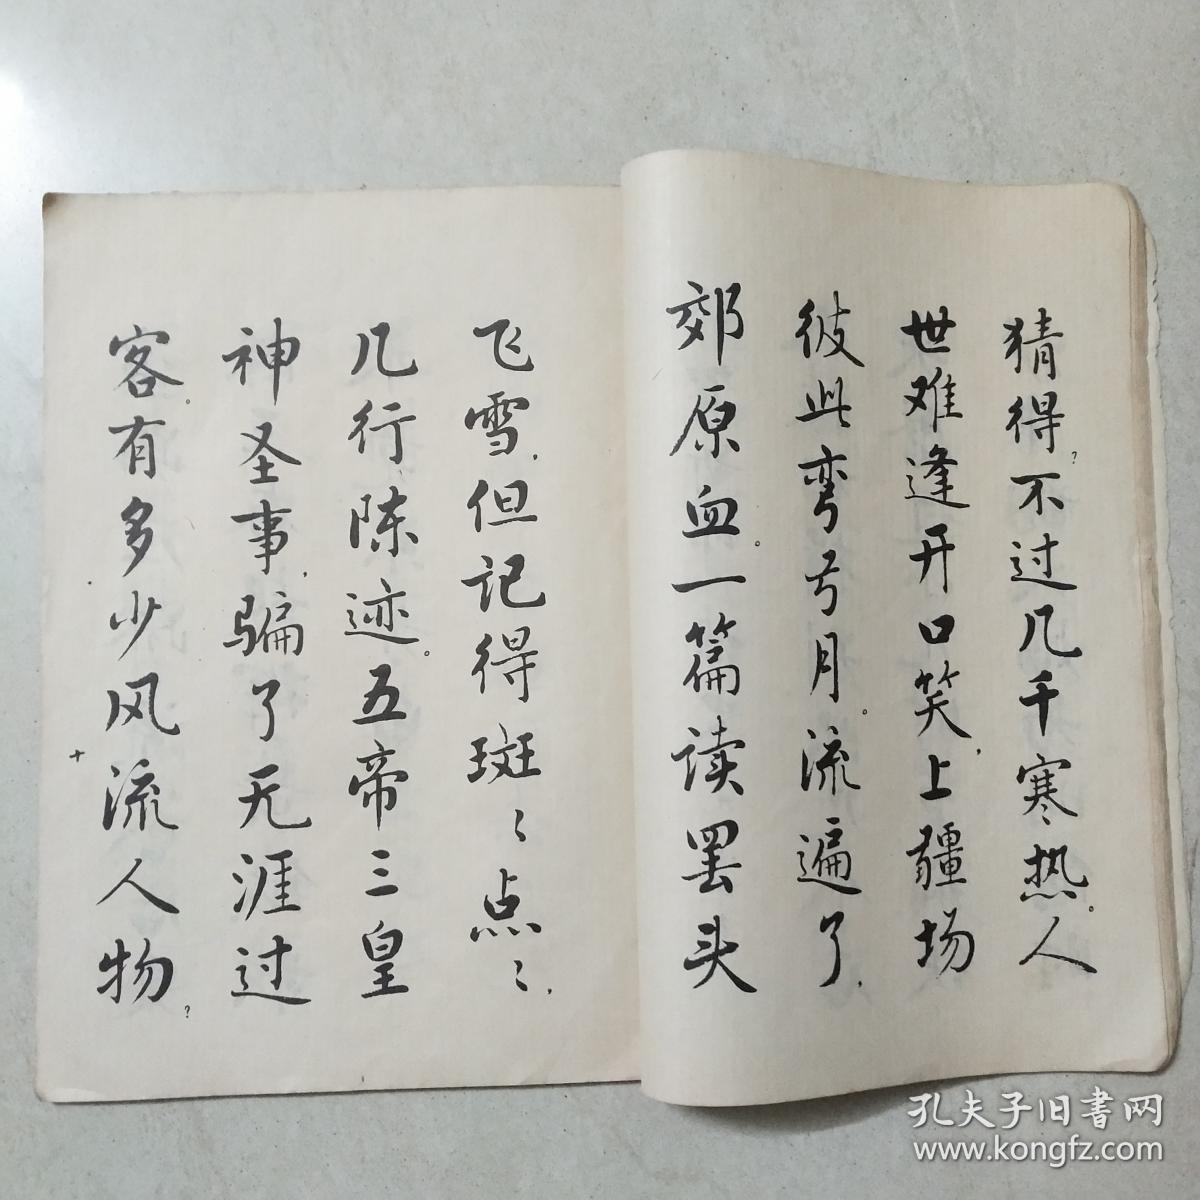 猜得？不过几千寒热。人
世难逢开口笑，上疆场
彼此弯弓月。流遍了，
郊原血。一篇读罢头
飞雪，但记得斑〻点〻，
几行陈迹。五帝三皇
神圣事，骗了无涯过
客。有多少风流人物？
孔夫子旧書网
www.kongfz.com